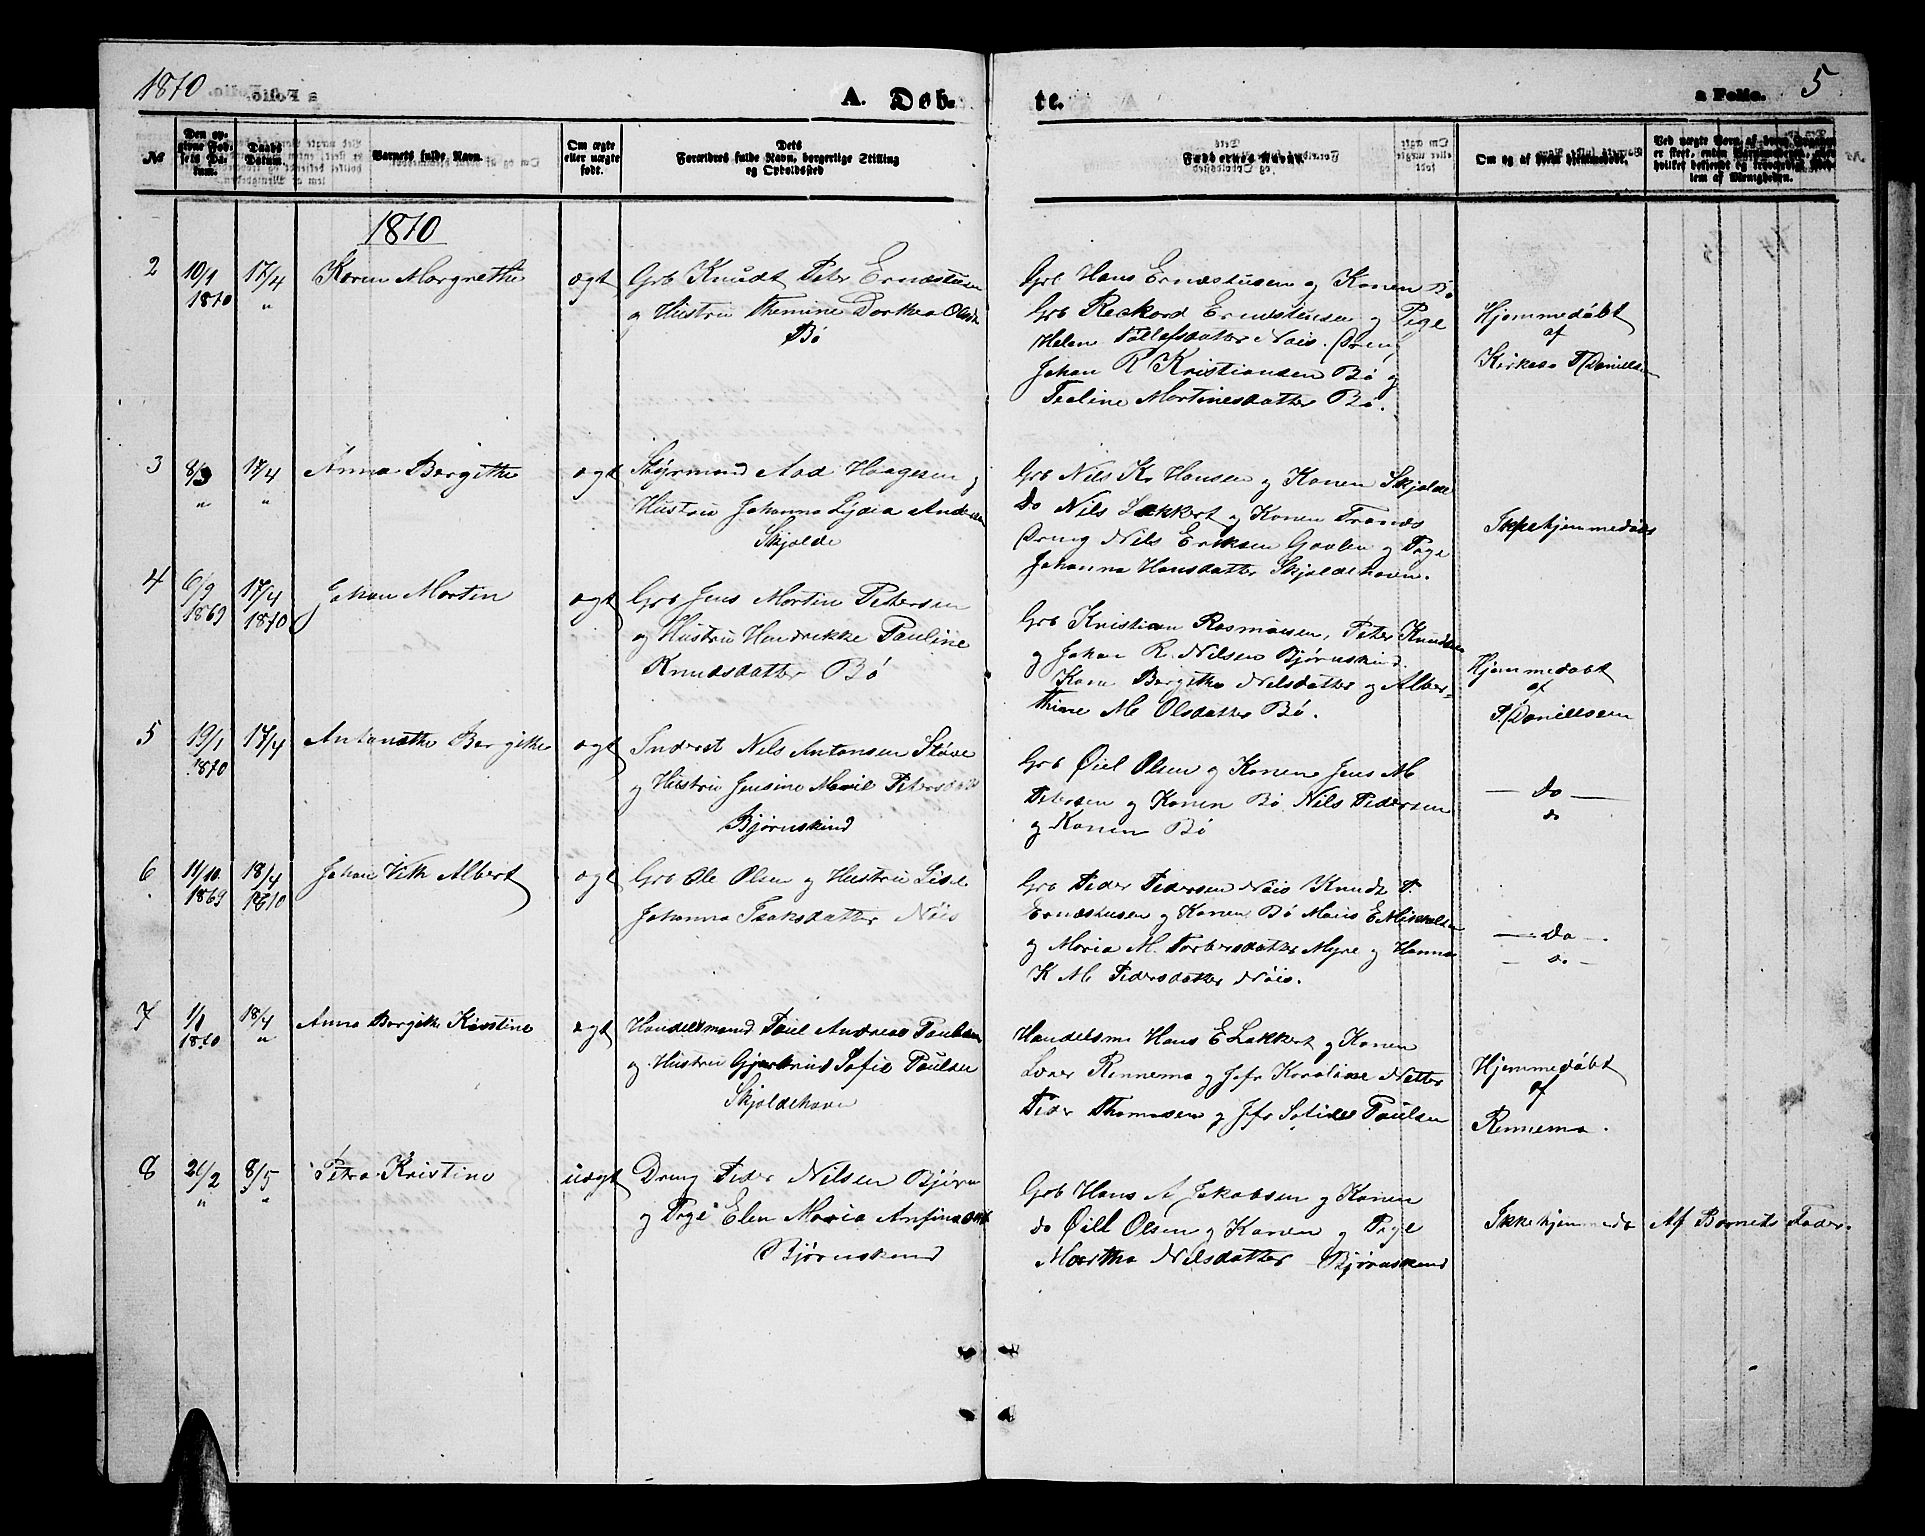 1870
A. Døb-
te.
a Folio.
5
No
Den opgivne Fødsels Datum.
Daabs Datum.
Barnets fulde Navn.
Om ægte eller uægte født.
Dets Forældres fulde Navn, borgerlige Stilling og Opholdssted
Faddernes Navne.
Om og af hvem hjemmedøbt.
1870
2 10/1 1870 17/4 " Karen Margrethe ægt
Grb Knudt Peter Ernæstusen
og Hustru Themine Dorthea Olsdr
Bø
Grb Hans Ernæstusen og Konen Bø
Grb Reckord Ernestusen og Pige
Helen Tollefsdatter Nøis. Dreng
Johan R Kristiansen Bø og
Peeline Martinesdatter Bø.
Hjemmedøbt
af
Kirkes. P Danielsen
3 8/3 " 17/4 " Anna Bergithe ægt
Styrmand Aad Haagesen og
Hustru Johanna Lydia Andersen
Skjolde
Grb Nils Kr Hansen og Konen Skjolde
Do Nils Lækkert og Konen Tranæs
Dreng Nils Eriksen Gavlen og Pige
Johanna Hansdatter Skjoldehavn.
Ikkehjemmedøbt
4 6/9 1869 17/4 1870 Johan Martin ægt
Grb Jens Martin Petersen
og Hustru Hendrikke Pauline
Knudsdatter Bø
Grb Kristian Rasmussen, Peter Knudsen
og Johan R. Nilsen Bjørnskind.
Kone Bergithe Nilsdatter og Alber-
thine M Olsdatter Bø.
Hjemmedøbt
af
P. Daniellsen
5 19/1 1870 17/4 Antonethe Bergithe ægt
Inderst Nils Antonsen Støve
og Hustru Jensine Marie Petersdatter
Bjørnskind
Grb Øiel Olsen og Konen Jens M
Petersen og Konen Bø Nils Pedersen
og Konen Bø
— Do —
do
6 11/10 1869 18/4 1870 Johan Vith Albert ægt
Grb Ole Olsen og Hustru Lise
Johanna Isaksdatter Nøis
Grb Peder Pedersen Nøis Knudt P.
Ernæstusen og Konen Bø Mons E Mikalsen
og Maria M. Torbersdatter Myre og Hanna
K M Pedersdatter Nøis.
— Do —
— do —
7 1/1 1870 18/4 " Anna Bergithe Kirstine ægt
Handelsmand Paul Andreas Paulsen
og Hustru Gjertrud Sofie Paulsen
Skjoldehavn
Handelsm Hans E Lækkert og Konen
Lærer Rennemo og Jfr Karoline Netter
Peder Thomasen og Jfr Sofie Paulsen
Hjemmedøbt
af
Rennemo.
8 21/2 " 8/5 " Petra Kristine uægt
Dreng Peder Nilsen Bjørn
og Pige Elen Maria Anfinsdatt
Bjørnskind
Grb Hans A Jakobsen og Konen
do Øiel Olsen og Konen og Pige
Martha Nilsdatter Bjørnskind
Ikkehjemmedø
Af Barnets Fader.